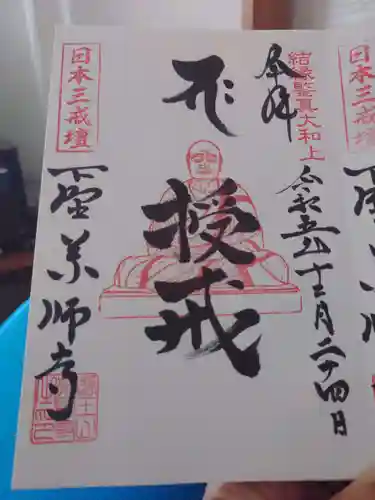 日本三戒壇
奉拝
結縁鑒真大和上
令和五年十二月二十四日
授戒
日本三戒壇
下野薬師寺